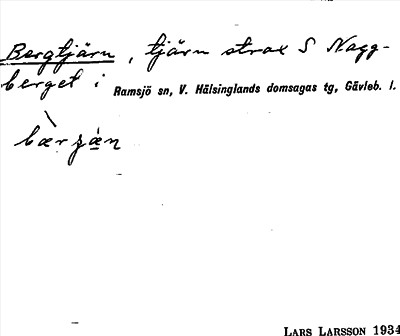 Bergtjärn, tjärn strax S Nagg-
berget i Ramsjö sn, V. Hälsinglands domsagas tg, Gävleb. l.
bærʒàn
LARS LARSSON 1934